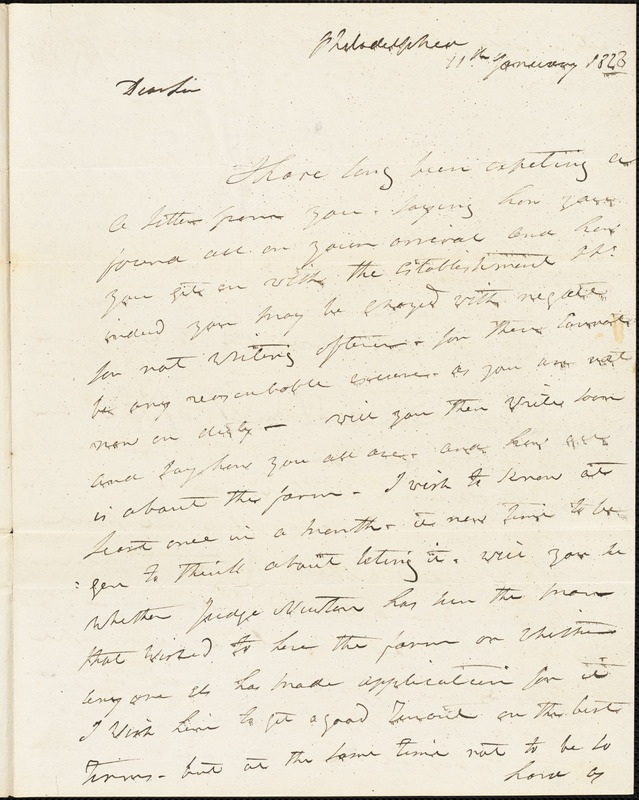 Philadelphia
11th January 1828
Dear Sir
I have long been expeting a
a letter from you. saying how you
found all on your arrival and how
you git on with the establishment &c.
indeed you may be charged with neglect
for not writing oftener. for there cannot
be any reasonable excuse. as you are not
now on duty - will you then write soon
and say how you all are. and how all
is about the farm. I wish to know at
least once in a month. it now time to be
gen to think about leting it. will you se
whether Judge Newton has seen the man
that wished to hire the farm or whether
any one els has made application for it
I wish him to get a good Tenant on the best
Terms. but at the same time not to be so
hard as